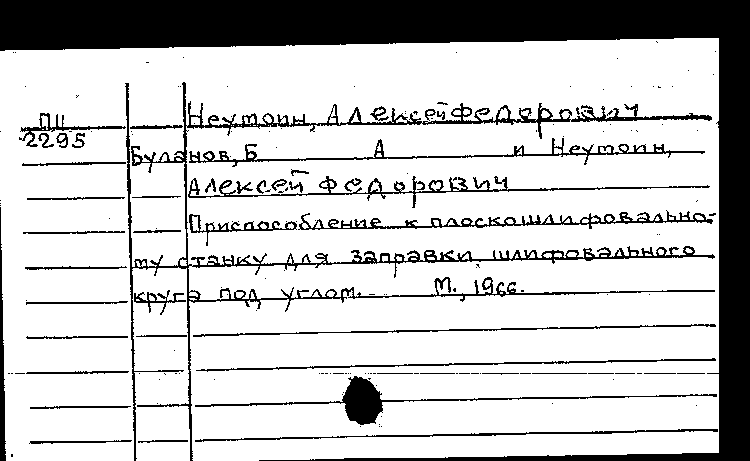 Неутопн, Алексей Федорович
ПЦ
2295
Буланов, Б А и Неутопн,
Алексей Федорович
Приспособление к плоскошлифовально-
му станку для заправки шлифовального
круга под углом. М., 1966.